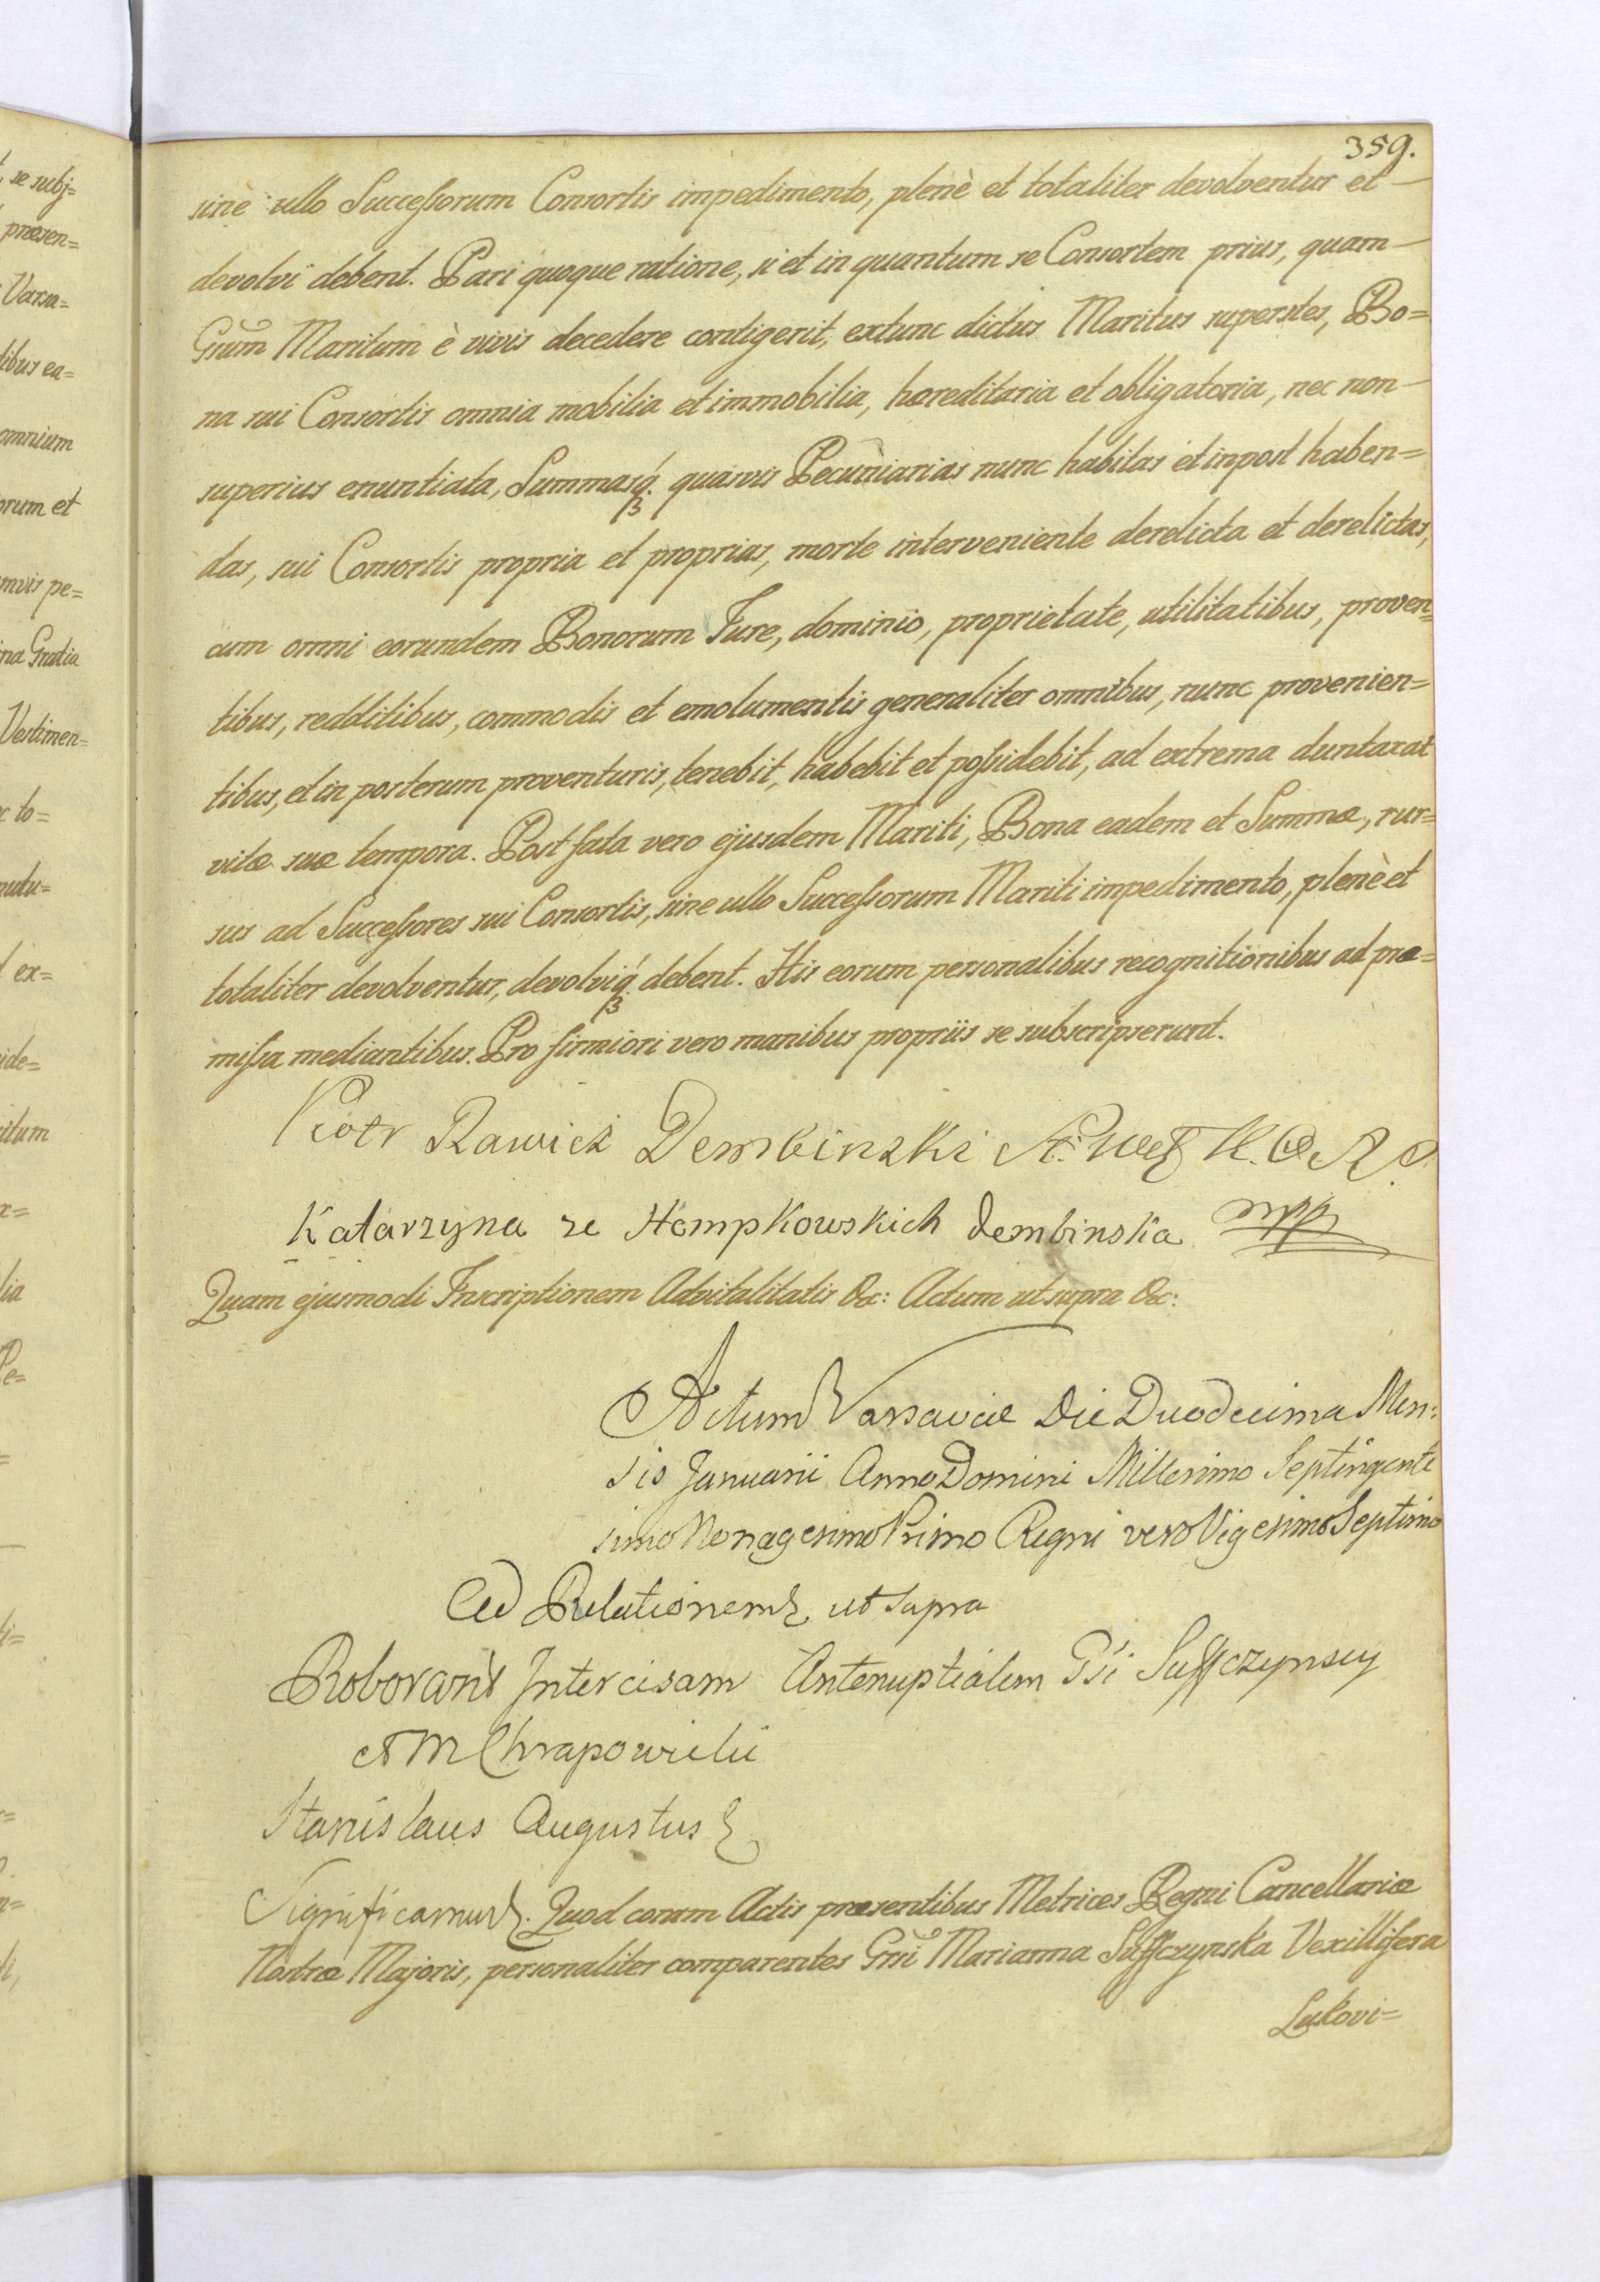 359.
sine ullo Successorum Consortis impedimento, plenè et totaliter devolventur et
devolvi debent. Pari quoque ratione, si et in quantum se Consortem prius, quam
Grum Maritum è vivis decedere contigerit, extunc dictus Maritus superstes, Bo=
na sui Consortis omnia mobilia et immobilia, hæreditaria et obligatoria, nec non
superius enuntiata, Summasq. quasvis Pecuniarias nunc habitas et inpost haben=
das, sui Consortis propria et proprias, morte interveniente derelicta et derelictas,
cum omni eorundem Bonorum Jure, dominio, proprietate, utilitatibus, proven=
tibus, redditibus, commodis et emolumentis generaliter omnibus, nunc provenien=
tibus, et in posterum proventuris, tenebit, habebit et possidebit, ad extrema duntaxat
vitæ suæ tempora. Post fata vero ejusdem Mariti, Bona eadem et Summæ, rur=
sus ad Successores sui Consortis, sine ullo Successorum Mariti impedimento, plenè et
totaliter devolventur, devolviq. debent. His eorum personalibus recognitionibus ad præ=
missa mediantibus. Pro firmiori vero manibus propriis se subscripserunt.
Piotr Rawicz Dembinski
Katarzyna ze Hempkowskich Dembinska mpp
Quam ejusmodi Inscriptionem Advitalitatis &c: Actum ut supra &c:
Actum Varsaviæ Die Duodecima Men:
sis Januarii Anno Domini Millesimo Septingente
simo Nonagesimo Primo Regni vero Vigesimo Septimo
Ad Relationem ut supra
Roborant Intercisam Antenuptialem Gsi Suffczynscy
et M Chrapowicki
Stanislaus Augustus
Significamus. Quod coram Actis præsentibus Metrices Regni Cancellariæ
Nostræ Majoris, personaliter comparentes Grsi Marianna Suffczynska Vexillifera
Lukovi=